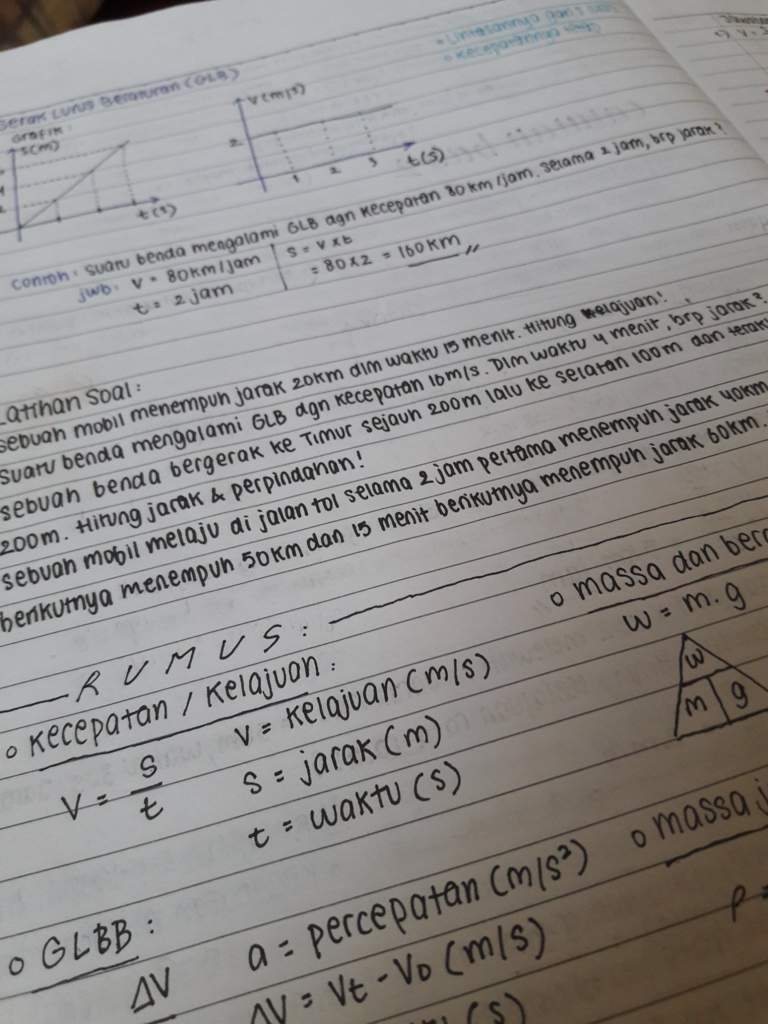 Gerak Lurus Beraturan (GLB)
• Lintasannya
• Kecepatannya
Grafik:
s(m)
t(s)
v(m/s)
2
1 2 3
t(s)
contoh: suatu benda mengalami GLB dgn kecepatan 80 km/jam. selama 2 jam, brp jarak?
jwb: v = 80km/jam
t = 2 jam
s = v x t
= 80 x 2 = 160 km
Latihan Soal:
sebuah mobil menempuh jarak 20km dlm waktu 15 menit. Hitung kelajuan!
suatu benda mengalami GLB dgn kecepatan 10m/s. Dlm waktu 4 menit, brp jarak?
sebuah benda bergerak ke Timur sejauh 200m lalu ke selatan 100m dan
200m. Hitung jarak & perpindahan!
sebuah mobil melaju di jalan tol selama 2 jam pertama menempuh jarak 40km
berikutnya menempuh 50km dan 15 menit berikutnya menempuh jarak 60km.
RUMUS:
o Kecepatan / Kelajuan:
v = s/t
v = kelajuan (m/s)
s = jarak (m)
t = waktu (s)
o massa dan
w = m.g
w
m g
o GLBB:
ΔV
a = percepatan (m/s²)
ΔV = Vt - Vo (m/s)
(s)
o massa
ρ =